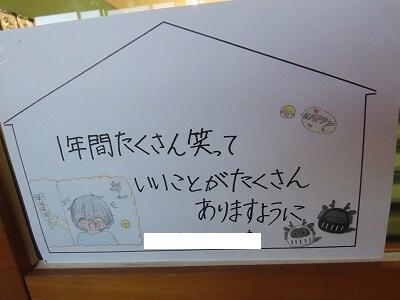 HAPPY
1年間たくさん笑って
いいことがたくさん
ありますように